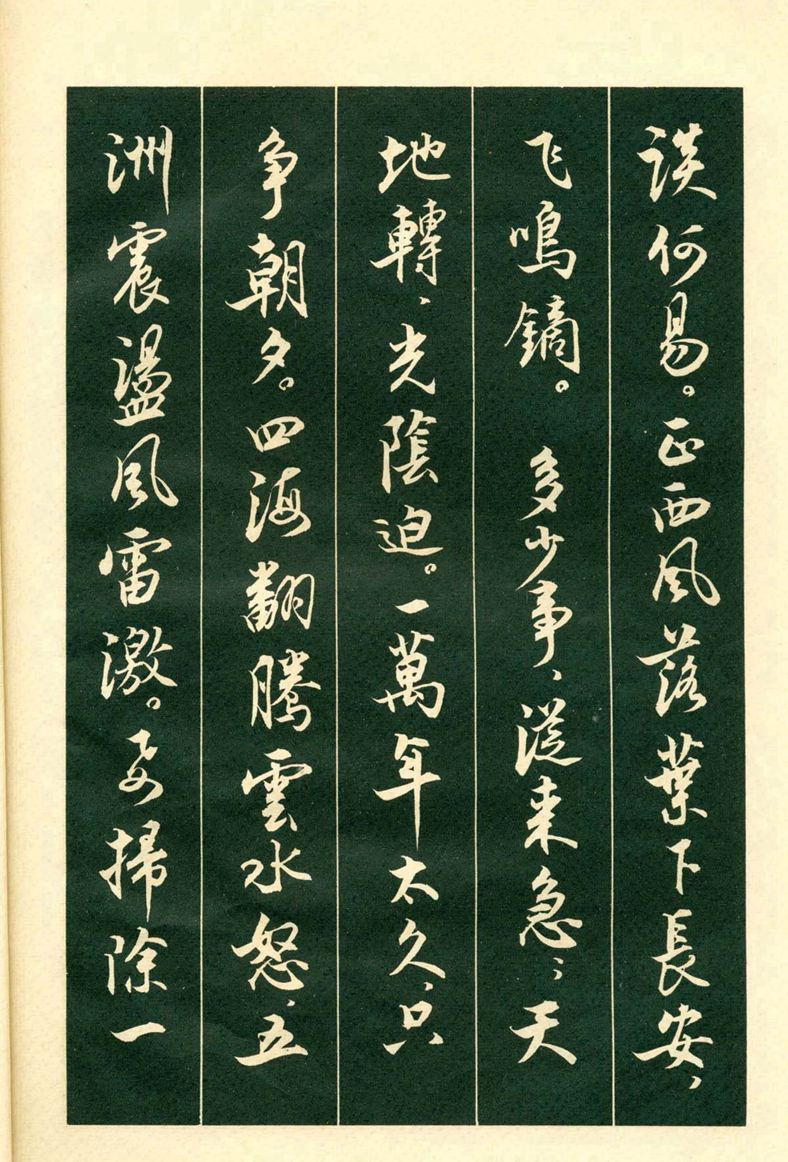 谈何易。正西风落葉下長安，
飞鳴鏑。 多少事、從来急；天
地轉、光陰迫。一萬年太久，只
争朝夕。四海翻腾雲水怒，五
洲震盪风雷激。要掃除一